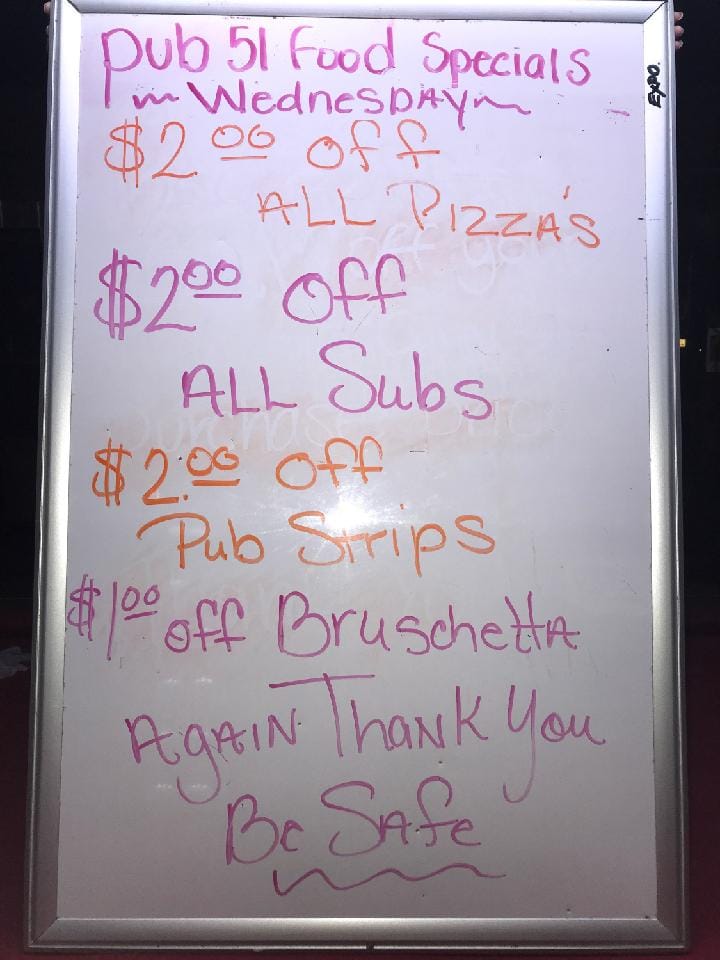 Pub 51 Food Specials
~ WednesDAY ~
$2.00 off
ALL PIZZA'S
$2.00 off
ALL Subs
$2.00 off
Pub Strips
$1.00 off BruschettA
AgAIN Thank You
Be SAfe
EXPO